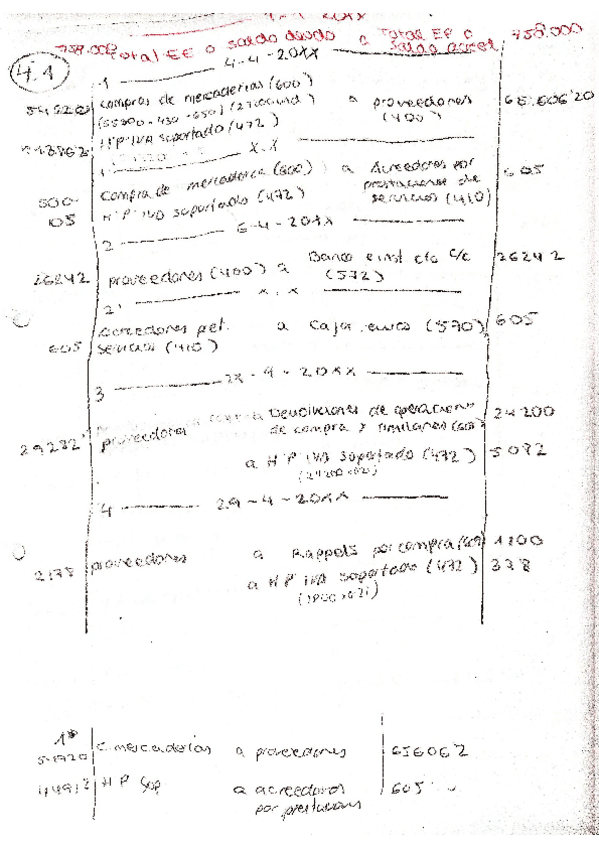 1-1-201X
758.000 Total EE o saldo deudo a Total EP o saldo acreel 758.000
4.1
1 4-4-20XX
54220 compras de mercaderias (600)
a proveedores (400) 65.606'20
HP IVA soportado (472)
X.X
Compra de mercaderia (600) a Acreedores por prestaciones de servicios (410) 605
500-
105 H P IVA soportado (472)
2 6-4-20XX
26242 proveedores (400) a Banco e inst c/c (572) 26242
2' X.X
605 Acreedores pet. servicios (410) a Caja euros (570) 605
3 -4-20XX
29282 proveedores a Devoluciones de operaciones de compra y similares (608) 24200
a H P IVA soportado (472) 5082
4 29-4-20XX
2178 proveedores a Rappels por compra (609) 1800
a H P IVA soportado (472) 378
(1800x021)
1º
c mercaderias a proveedores 65606'2
HP Sop a acreedores por prestacions 605